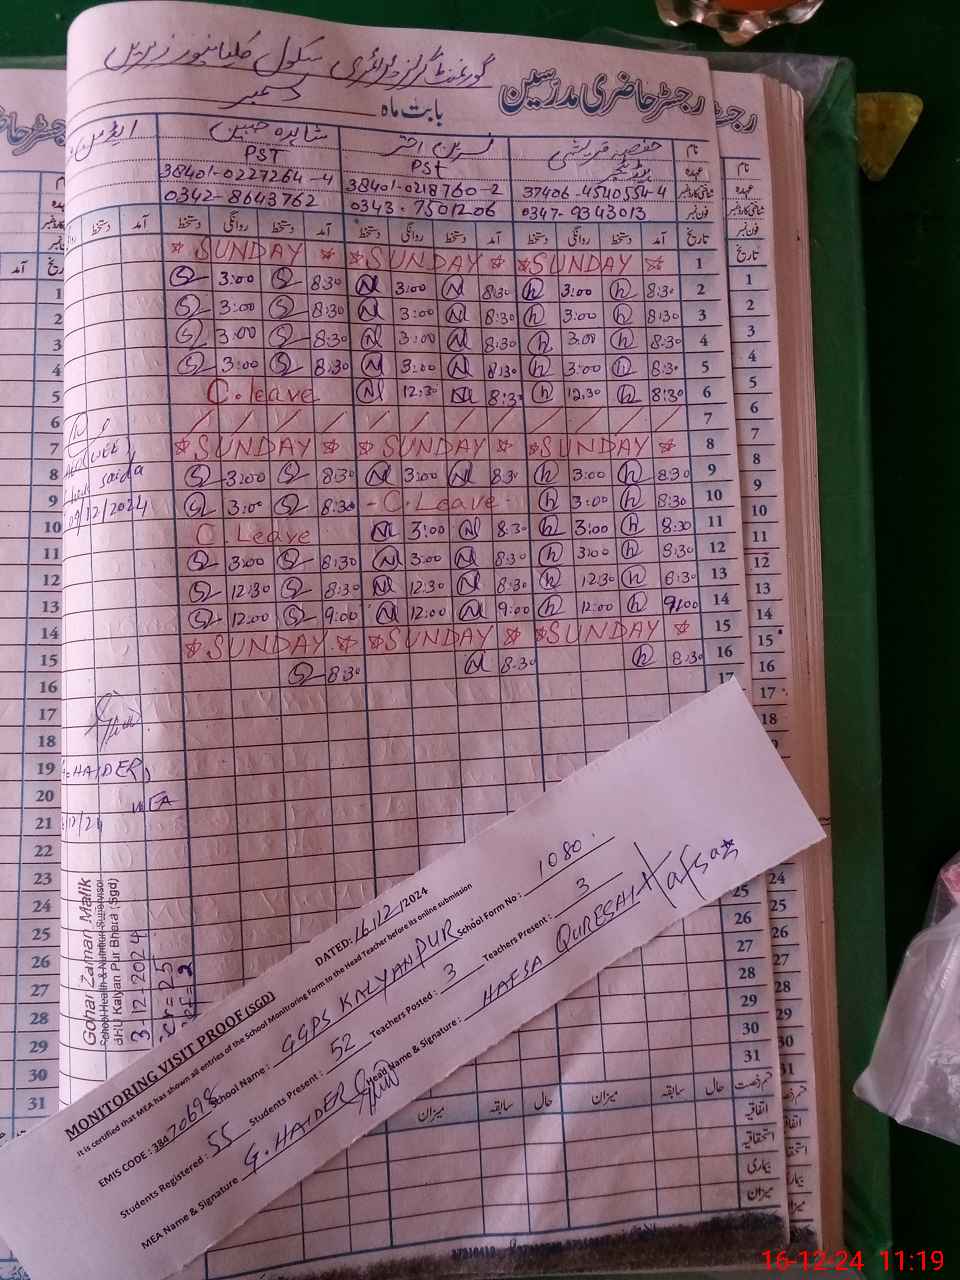 گورنمنٹ گرلز پرائمری سکول کلیانپور زیریں
رجسٹر حاضری مدرسین
بابت ماہ دسمبر
نام حفصہ قریشی نسرین اختر شاہدہ جبین
عہدہ PST PST
شناختی کارڈ نمبر 37406-4540554-4 38401-0218760-2 38401-0227264-4
فون نمبر 0347-9343013 0343-7501206 0342-8643762
تاریخ آمد دستخط روانگی دستخط آمد دستخط روانگی دستخط آمد دستخط روانگی دستخط
1 SUNDAY SUNDAY SUNDAY
2 8:30 h 3:00 h 8:30 N 3:00 N 8:30 S 3:00 S
3 8:30 h 3:00 h 8:30 N 3:00 N 8:30 S 3:00 S
4 8:30 h 3:00 h 8:30 N 3:00 N 8:30 S 3:00 S
5 8:30 h 3:00 h 8:30 N 3:00 N 8:30 S 3:00 S
6 8:30 h 12:30 h 8:30 N 12:30 N C.leave
7
8 SUNDAY SUNDAY SUNDAY
9 8:30 h 3:00 h 8:30 N 3:00 N 8:30 S 3:00 S
10 8:30 h 3:00 h - C.Leave - 8:30 S 3:00 S
11 8:30 h 3:00 h 8:30 N 3:00 N C.Leave
12 8:30 h 3:00 h 8:30 N 3:00 N 8:30 S 3:00 S
13 8:30 h 12:30 h 8:30 N 12:30 N 8:30 S 12:30 S
14 9:00 h 12:00 h 9:00 N 12:00 N 9:00 S 12:00 S
15 SUNDAY SUNDAY SUNDAY
16 8:30 h 8:30 N 8:30 S
17
25
26
27
28
29
30
31
saida
09/12/2024
G.HAIDER
MEA
Gohar Zaman Malik
School Health & Nutrition Supervisor
dHU Kalyan Pur Bhera (Sgd)
3-12-2024
MONITORING VISIT PROOF (SGD)
DATED: 16/12/2024
It is certified that MEA has shown all entries of the School Monitoring Form to the Head Teacher before its online submission
EMIS CODE : 38470698 School Name : GGPS KALYANPUR School Form No : 1080
Students Registered : 55 Students Present : 52 Teachers Posted : 3 Teachers Present : 3
MEA Name & Signature G. HAIDER Head Name & Signature : HAFSA QURESHI Hafsa
حال سابقہ میزان حال سابقہ میزان
اتفاقیہ
استحقاقیہ
بیماری
میزان
16-12-24 11:19